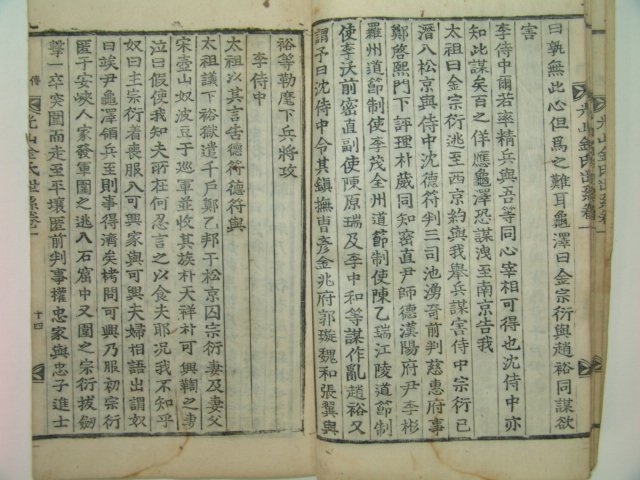 曰孰無此心但爲之難耳龜澤曰金宗衍與趙裕同謀欲
害
李侍中爾若率精兵與吾等同心宰相可得也沈侍中亦
知此謀矣百之佯應龜澤恐謀洩至南京告我
太祖曰金宗衍逃至西京約與我舉兵謀害侍中宗衍已
潛入松京與侍中沈德符判三司池湧奇前判慈惠府事
鄭啓熙門下評理朴葳同知密直尹師德漢陽府尹李彬
羅州道節制使李茂全州道節制使陳乙瑞江陵道節制
使李沃前密直副使陳原瑞及李中和等謀作亂趙裕又
謂予曰沈侍中令其鎭撫曹彥金兆府郭璇魏和張翼與
裕等勒麾下兵將攻
李侍中
太祖以其言告德符德符與
太祖議下裕獄遣千戶鄭乙邦于松京囚宗衍妻及妻父
宋壺山奴波豆于巡軍並收其族朴天祥朴可興鞫之壽
泣曰假使我知夫所在何忍言之以食夫耶況我不知乎
奴曰主宗衍着喪服入可興家與可興夫婦相語出謂奴
曰唉尹龜澤領兵至則事得濟矣栲問可興乃服初宗衍
匿于安峽人家發軍圍之逃入石窟中又圍之宗衍拔劒
擊一卒突圍而走至平壤匿前判事權忠家與忠子進士
傳
光山金氏世系卷一
十四
光山金氏世系卷一